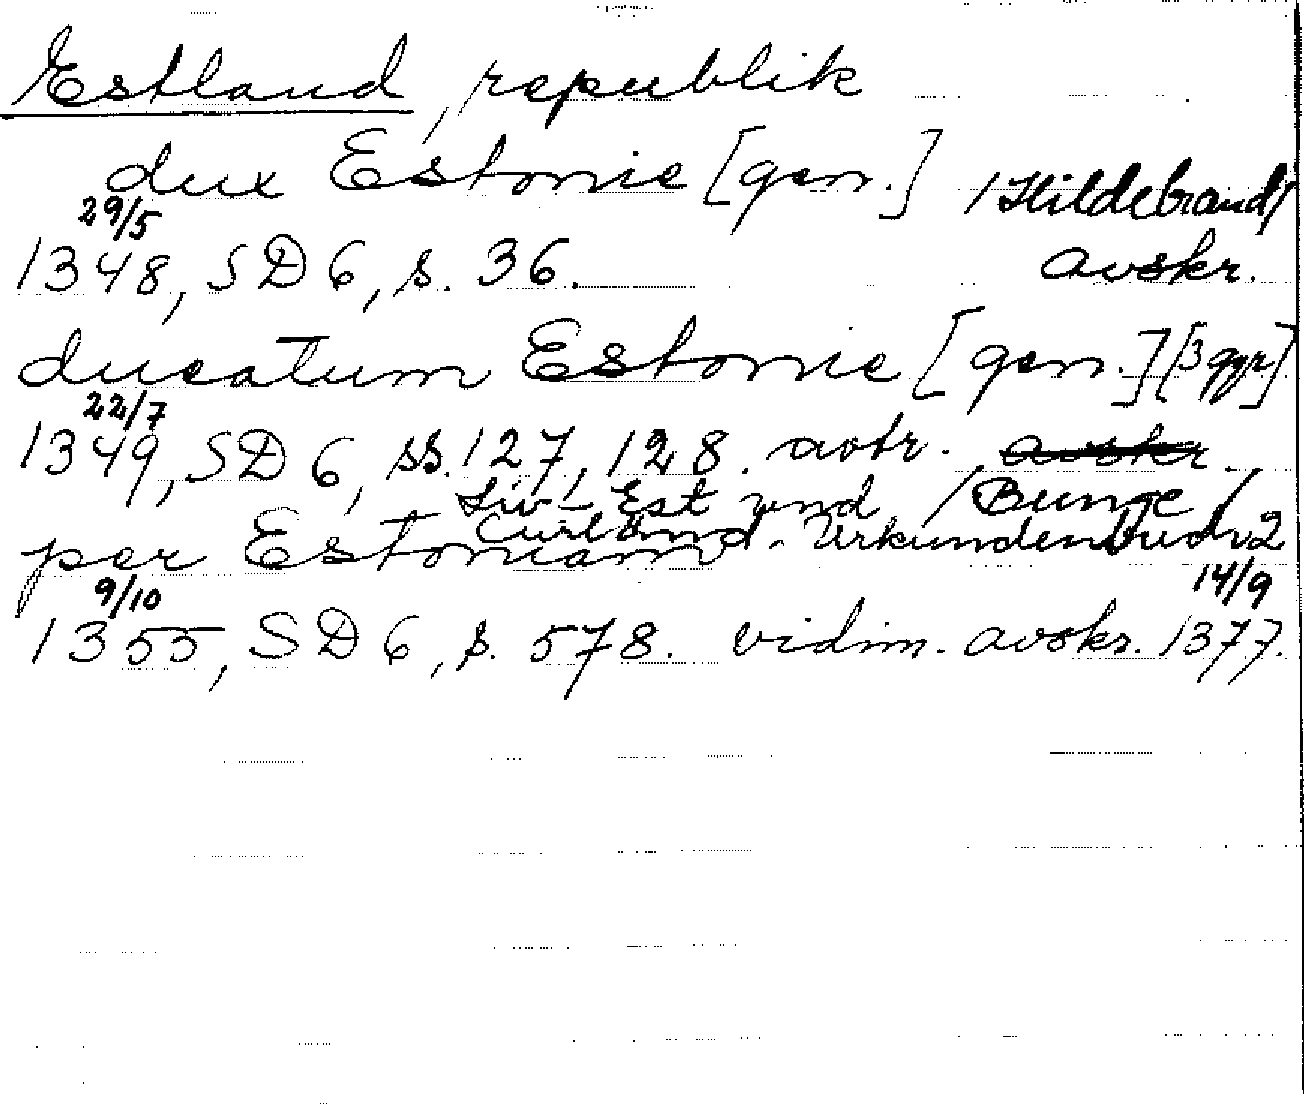 Estland, republik
dux Estonie [gen.] /Hildebrand/
29/5
1348, SD 6, s. 36. avskr.
ducatum Estonie [gen.] [3 ggr]
22/7
1349, SD 6, ss. 127, 128. avtr. avskr.
Liv- Est und /Bunge/
Curland. Urkundenbuch 2
per Estoniam
9/10 14/9
1355, SD 6, s. 578. vidim. avskr. 1377.